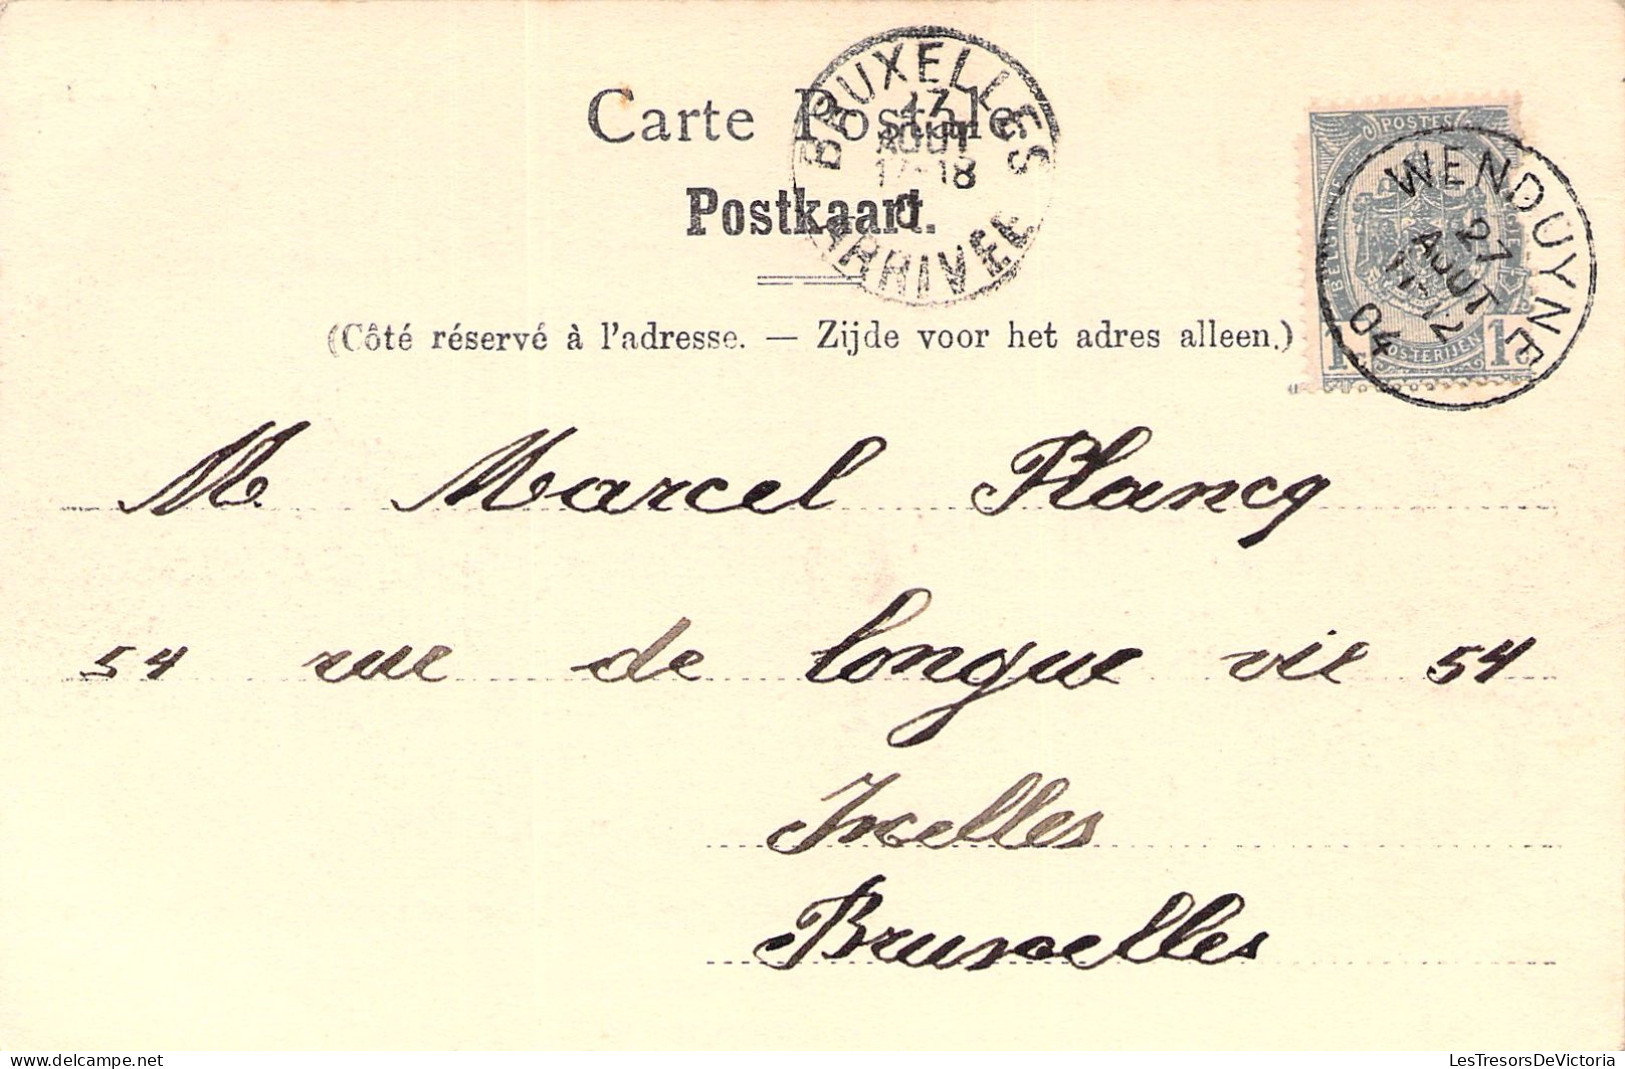 Carte Postale
Postkaart.
BRUXELLES
AOUT
ARRIVEE
POSTES
BELGIQUE
POSTERIJEN
1c 1c
WENDUYNE
27
AOUT
11-12
04
(Côté réservé à l'adresse. — Zijde voor het adres alleen.)
M Marcel Plancq
54 rue de longue vie 54
Ixelles
Bruxelles
LesTresorsDeVictoria